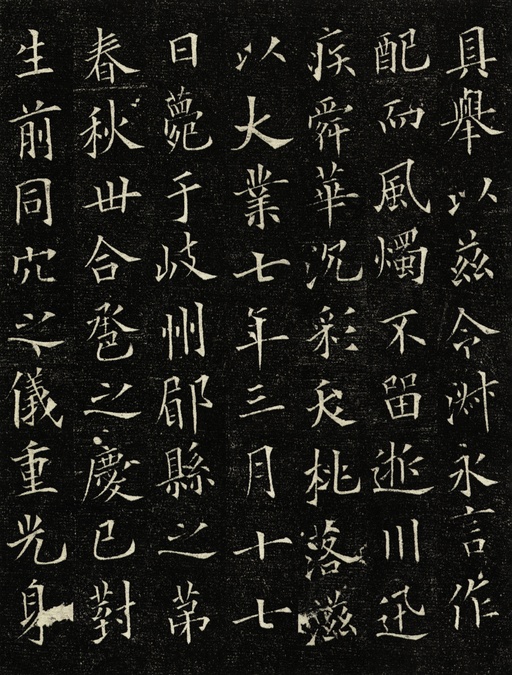 具舉以兹令淑永言作
配而風燭不留逝川迅
疾舜華沉彩夭桃落滋
以大業七年三月十七
日薨于岐州郿縣之苐
春秋丗合巹之慶已對
生前同穴之儀重光身